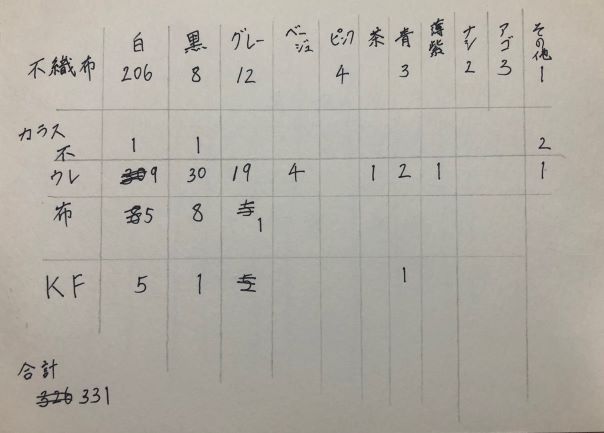 白 黒 グレー ベージュ ピンク 茶 青 薄紫 ナシ アゴ その他
不織布 206 8 12 4 3 2 3 1
カラス
不 1 1 2
ウレ 9 30 19 4 1 2 1 1
布 5 8 1
KF 5 1 1
合計
326 331